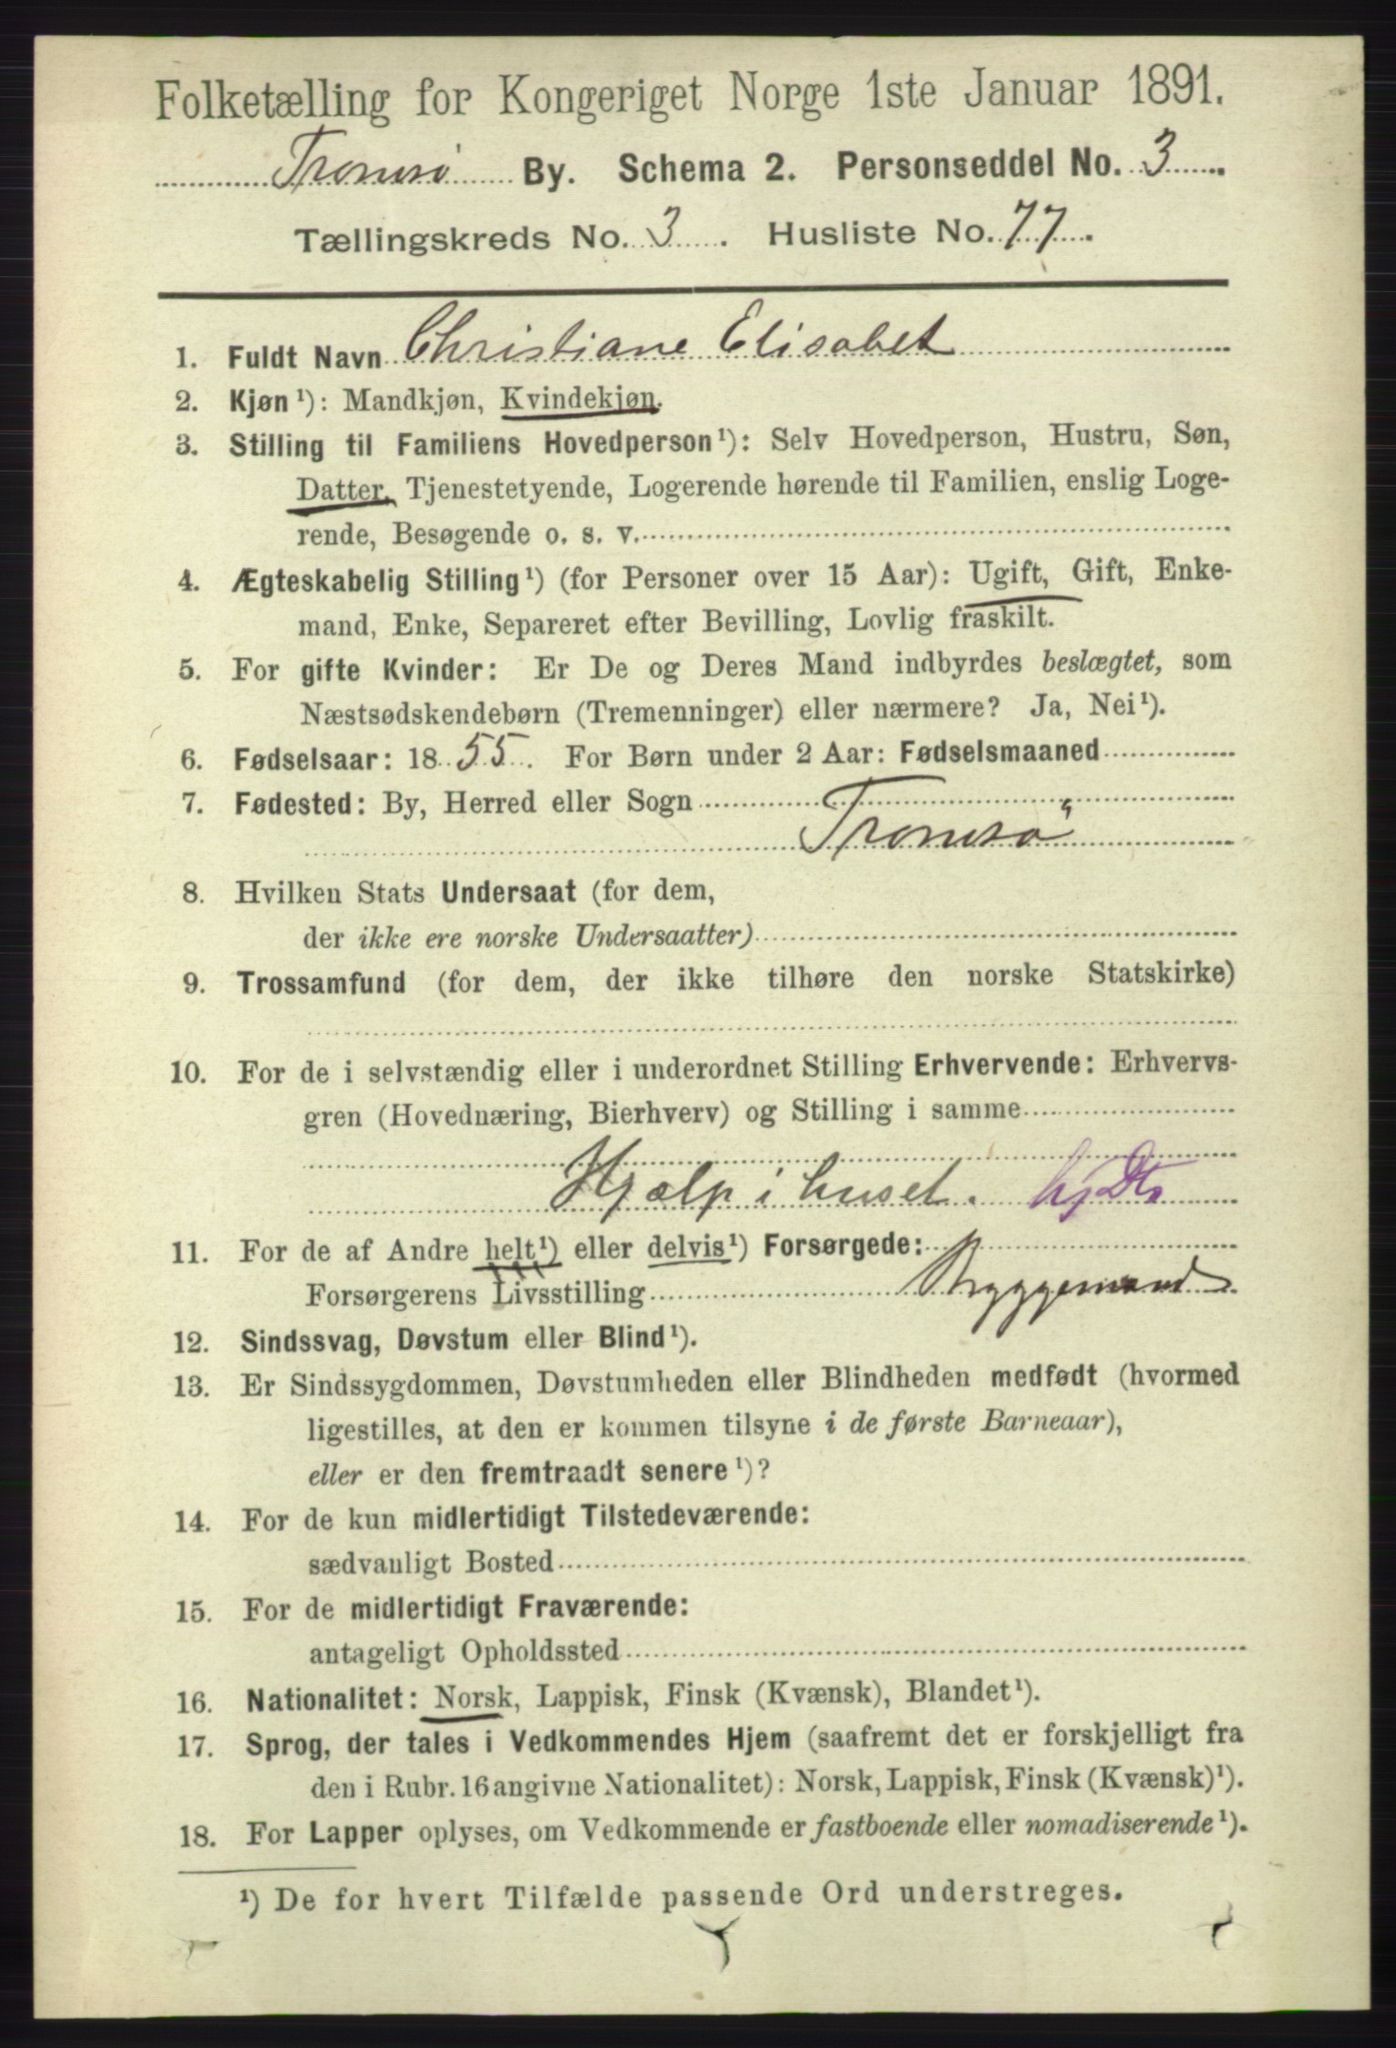 Folketælling for Kongeriget Norge 1ste Januar 1891.
Tromsø By. Schema 2. Personseddel No. 3
Tællingskreds No. 3. Husliste No. 77.
1. Fuldt Navn Christiane Elisabet
2. Kjøn¹): Mandkjøn, Kvindekjøn.
3. Stilling til Familiens Hovedperson¹): Selv Hovedperson, Hustru, Søn,
Datter, Tjenestetyende, Logerende hørende til Familien, enslig Loge-
rende, Besøgende o. s. v.
4. Ægteskabelig Stilling¹) (for Personer over 15 Aar): Ugift, Gift, Enke-
mand, Enke, Separeret efter Bevilling, Lovlig fraskilt.
5. For gifte Kvinder: Er De og Deres Mand indbyrdes beslægtet, som
Næstsødskendebørn (Tremenninger) eller nærmere? Ja, Nei¹).
6. Fødselsaar: 1855. For Børn under 2 Aar: Fødselsmaaned
7. Fødested: By, Herred eller Sogn
Tromsö
8. Hvilken Stats Undersaat (for dem,
der ikke ere norske Undersaatter)
9. Trossamfund (for dem, der ikke tilhøre den norske Statskirke)
10. For de i selvstændig eller i underordnet Stilling Erhvervende: Erhvervs-
gren (Hovednæring, Bierhverv) og Stilling i samme
Hjælp i huset. hjDtr
11. For de af Andre helt¹) eller delvis¹) Forsørgede:
Forsørgerens Livsstilling Byggemand
12. Sindssvag, Døvstum eller Blind¹).
13. Er Sindssygdommen, Døvstumheden eller Blindheden medfødt (hvormed
ligestilles, at den er kommen tilsyne i de første Barneaar),
eller er den fremtraadt senere¹)?
14. For de kun midlertidigt Tilstedeværende:
sædvanligt Bosted
15. For de midlertidigt Fraværende:
antageligt Opholdssted
16. Nationalitet: Norsk, Lappisk, Finsk (Kvænsk), Blandet¹).
17. Sprog, der tales i Vedkommendes Hjem (saafremt det er forskjelligt fra
den i Rubr. 16 angivne Nationalitet): Norsk, Lappisk, Finsk (Kvænsk)¹).
18. For Lapper oplyses, om Vedkommende er fastboende eller nomadiserende¹).
¹) De for hvert Tilfælde passende Ord understreges.